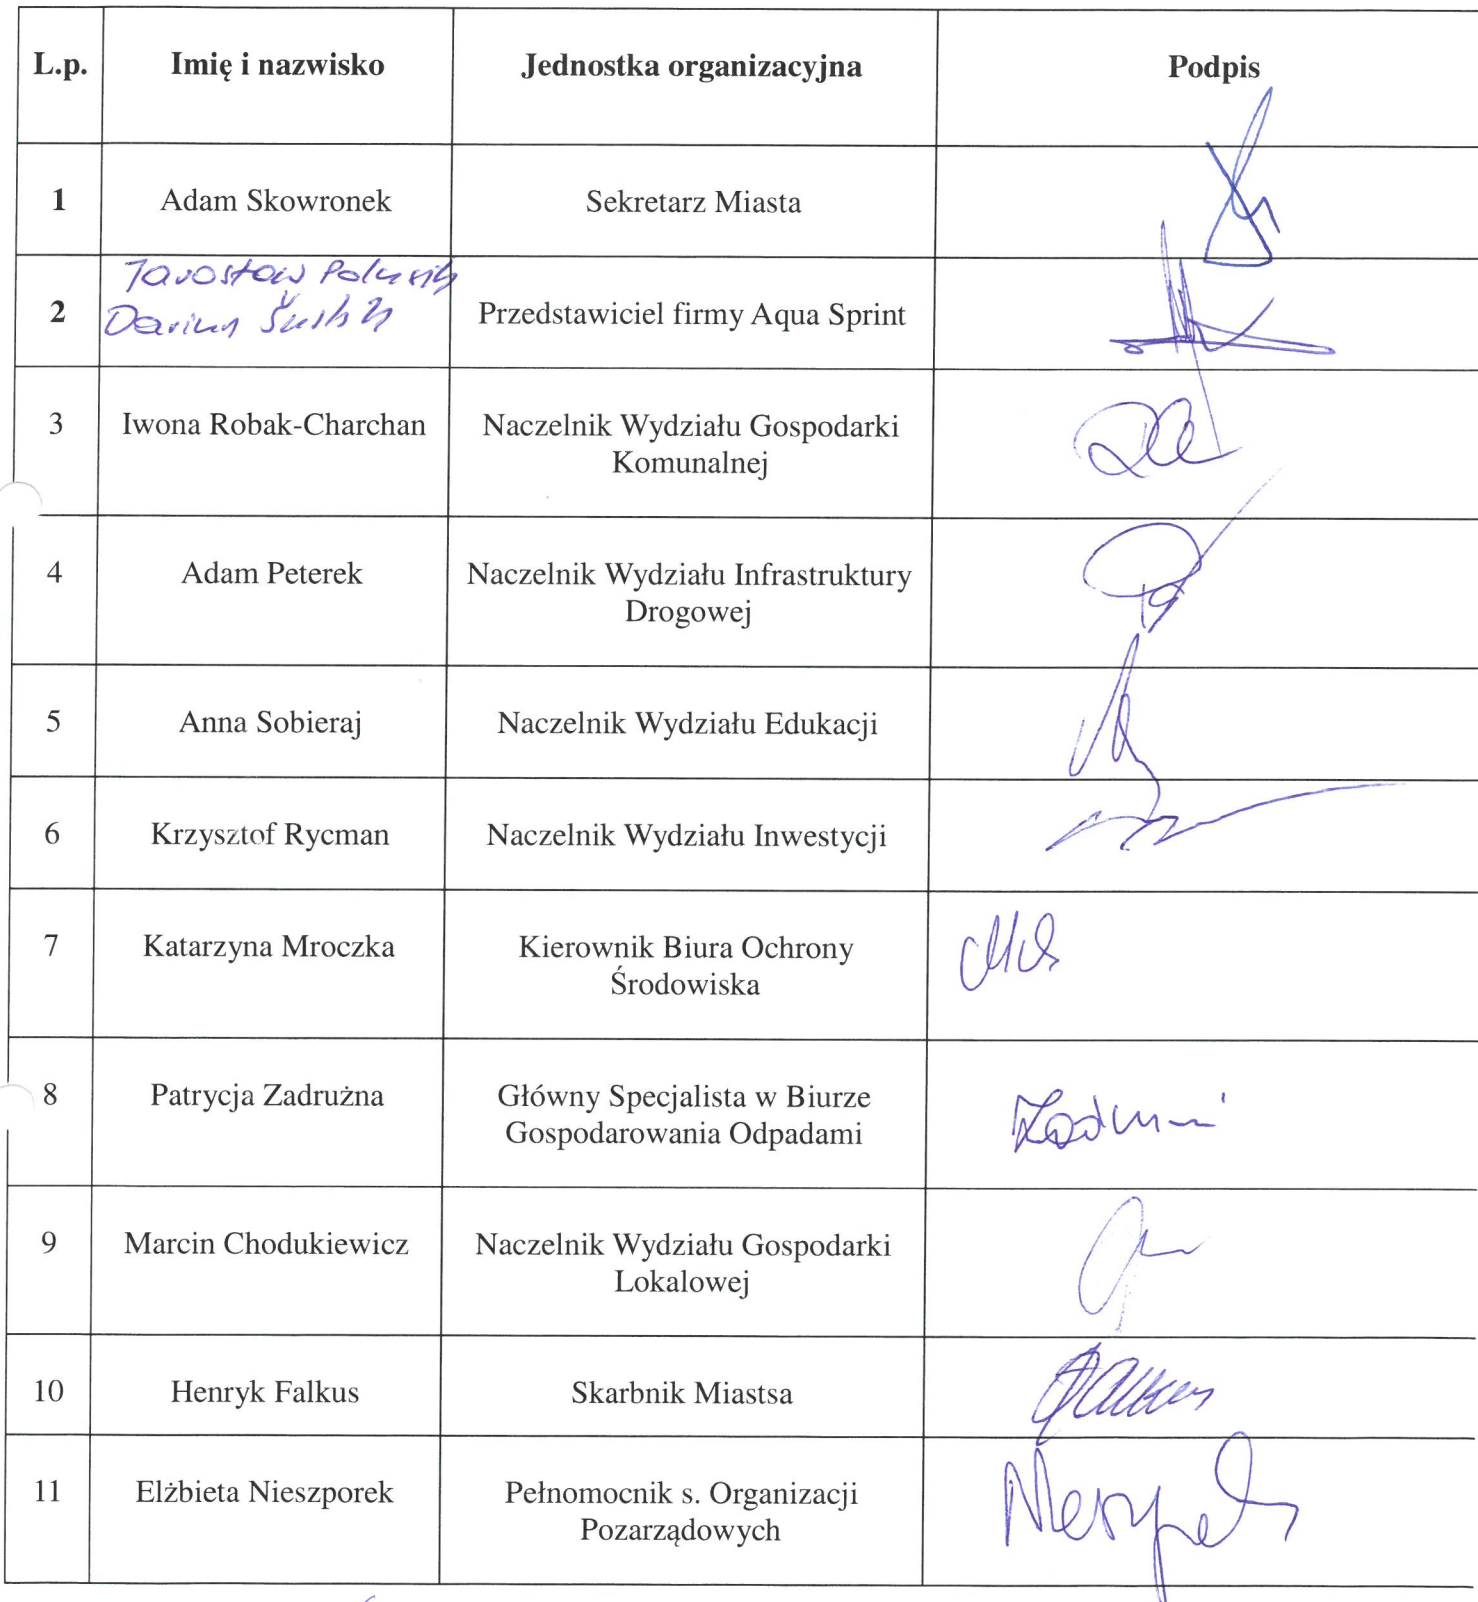 L.p. Imię i nazwisko Jednostka organizacyjna Podpis
1 Adam Skowronek Sekretarz Miasta
Jarosław
2 Dariusz Przedstawiciel firmy Aqua Sprint
3 Iwona Robak-Charchan Naczelnik Wydziału Gospodarki
Komunalnej
4 Adam Peterek Naczelnik Wydziału Infrastruktury
Drogowej
5 Anna Sobieraj Naczelnik Wydziału Edukacji
6 Krzysztof Rycman Naczelnik Wydziału Inwestycji
7 Katarzyna Mroczka Kierownik Biura Ochrony
Środowiska
8 Patrycja Zadrużna Główny Specjalista w Biurze
Gospodarowania Odpadami
9 Marcin Chodukiewicz Naczelnik Wydziału Gospodarki
Lokalowej
10 Henryk Falkus Skarbnik Miastsa
11 Elżbieta Nieszporek Pełnomocnik s. Organizacji
Pozarządowych